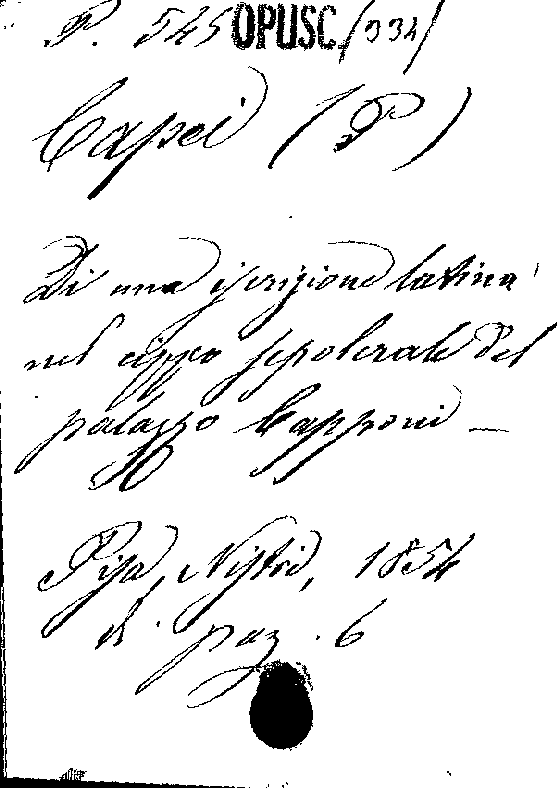 P. 545 OPUSC. (334)
Capei (P)
Di una iscrizione latina
nel cippo sepolcrale del
palazzo Capponi —
Pisa, Nistri, 1854
di pag. 6